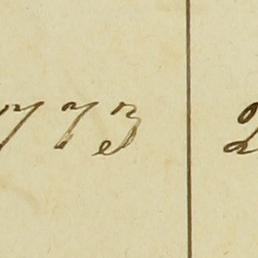 773 2